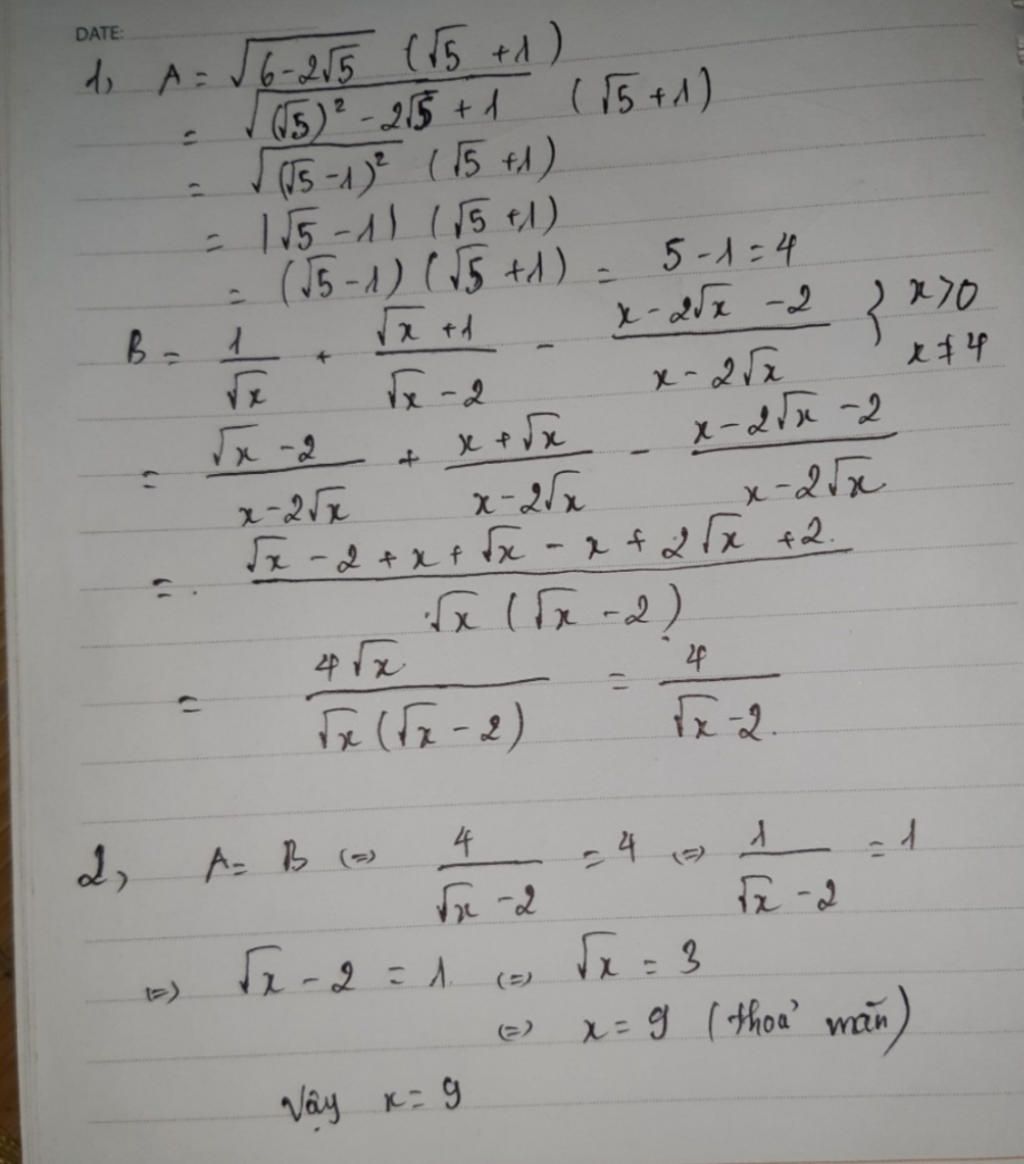 DATE:
1, A = √(6-2√5) (√5 +1)
= √((√5)² - 2√5 + 1) (√5 +1)
= √((√5 -1)²) (√5 +1)
= |√5 -1| (√5 +1)
= (√5 -1) (√5 +1) = 5 -1 = 4
B = 1/√x + (√x +1)/(√x -2) - (x - 2√x -2)/(x - 2√x) } x>0 x≠4
= (√x -2)/(x-2√x) + (x + √x)/(x-2√x) - (x-2√x -2)/(x-2√x)
= (√x -2 + x + √x - x + 2√x +2)/(√x (√x -2))
= 4√x/(√x (√x -2)) = 4/(√x -2).
2, A = B (=) 4/(√x -2) = 4 (=) 1/(√x -2) = 1
(=) √x - 2 = 1 (=) √x = 3
(=) x = 9 (thoả mãn)
Vậy x = 9